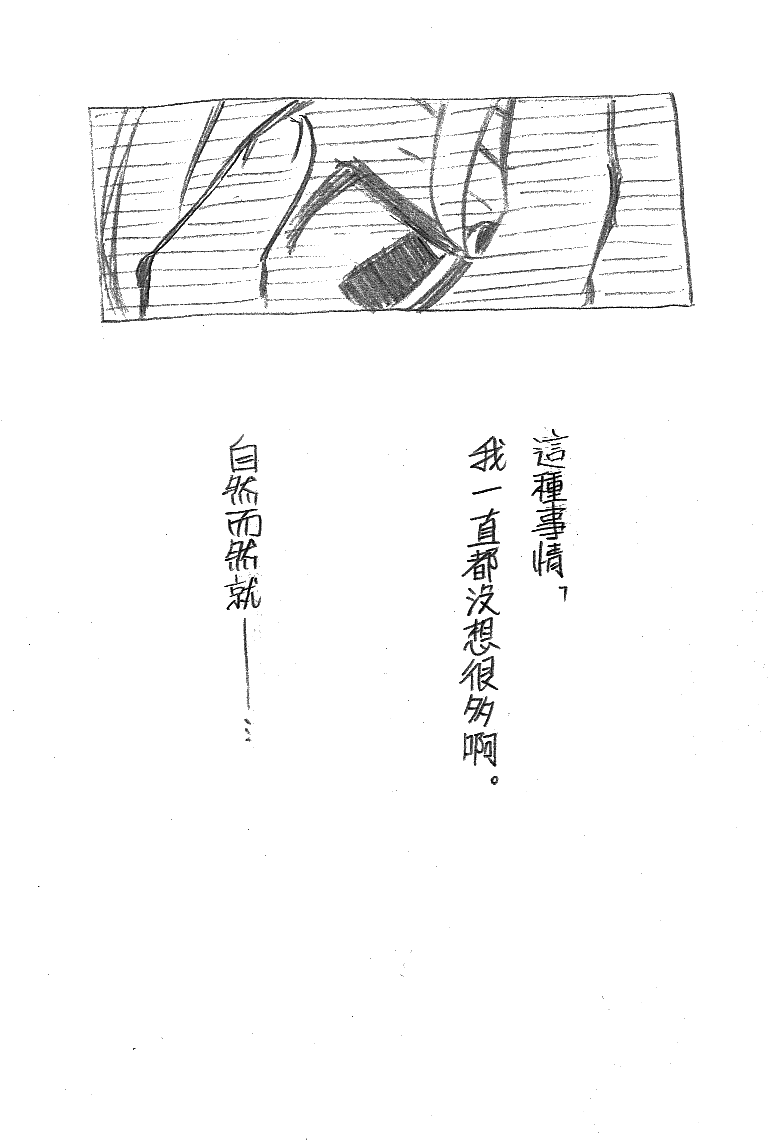 這種事情，
我一直都沒想很多啊。
自然而然就——…